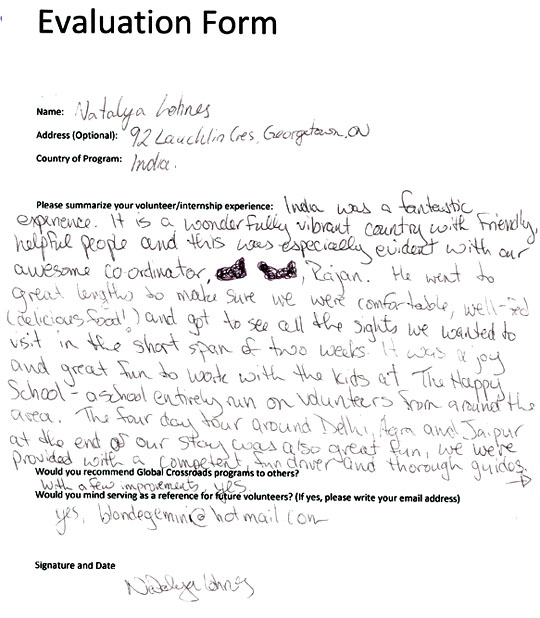 Evaluation Form
Name: Natalya Lohnes
Address (Optional): 92 Lauchlin Cres, Georgetown, ON
Country of Program: India.
Please summarize your volunteer/internship experience: India was a fantastic
experience. It is a wonderfully vibrant country with friendly,
helpful people and this was especially evident with our
awesome co-ordinator, Rajan. He went to
great lengths to make sure we were comfortable, well-fed
(delicious food!) and got to see all the sights we wanted to
visit in the short span of two weeks. It was a joy
and great fun to work with the kids at The Happy
School - a school entirely run on volunteers from around the
area. The four day tour around Delhi, Agra and Jaipur
at the end of our stay was also great fun, we were
provided with a competent fun driver and thorough guides.
Would you recommend Global Crossroads programs to others?
With a few improvements, yes
Would you mind serving as a reference for future volunteers? (If yes, please write your email address)
yes, blondegemini@hotmail.com
Signature and Date
Natalya Lohnes